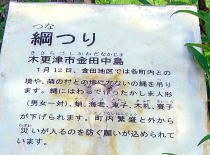 つな
綱つり
きさらづしかねだなかじま
木更津市金田中島
1月12日、金田地区では各町内との
境や、隣の村との境に方ないの縄を吊り
ます。縄にはわらで作ったかしま人形
(男女一対)、蛸、海老、束子、木札、賽子
が下げられます。町内繁盛と外から
わざわ
災いが入るのを防ぐ願いが込められて
います。